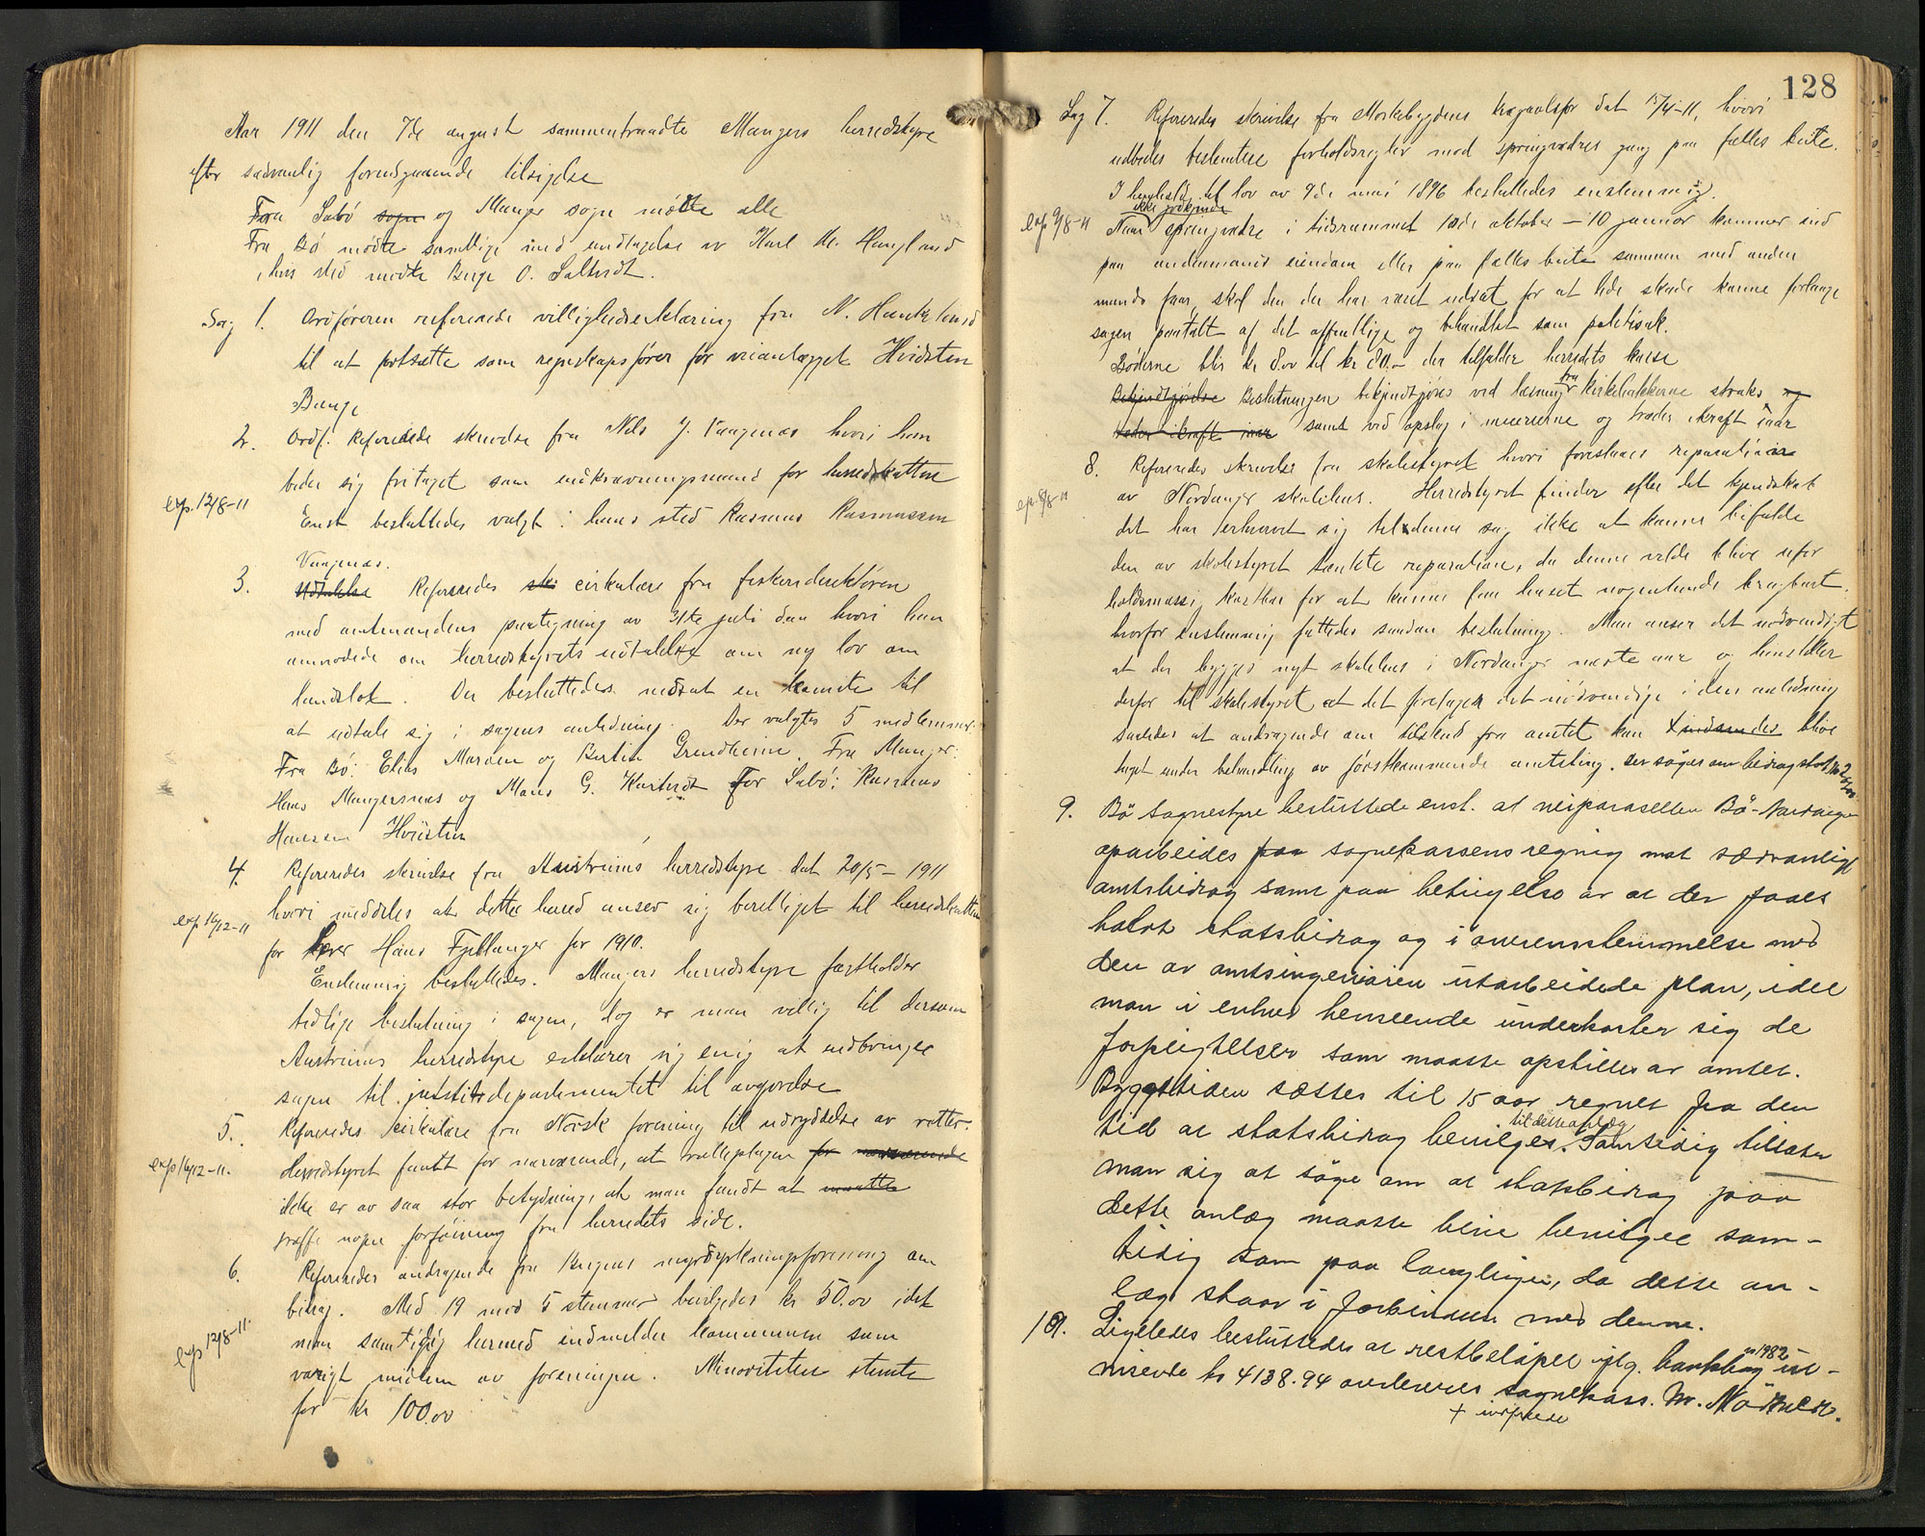 Aar 1911 den 7de august sammentraadte Mangers herredstyre
efter sædvanlig foregaaende tilsigelse
Fra Sæbö sogn og Manger sogn mötte alle
Fra Bö mödte samtlige med undtagelse av Karl M. Haugland
i hvis sted mödte Berge O. Saltvedt.
Sag 1. Ordföreren refererede villighedserklæring fra N.
til at fortsætte som regnskapsförer for veianlægget Hvidsten
Bauge
2. Ordf. Refererede skrivelse fra Nils J. Vaagenæs hvori han
beder sig fritaget som indkrævningsmand for herredskatten
exp. 12/8-11 Enst besluttedes valgt i hans sted Rasmus Rasmussen
Vaagenæs.
3. Udtalelse Refereredes cirkulære fra fiskeridirektören
med amtmandens paategning av 31te juli d.a. hvori han
anmodede om herredstyrets udtalelse om ny lov om
. Der besluttedes nedsat en komite til
at udtale sig i sagens anledning. Der valgtes 5 medlemmer.
Fra Bö: Elias Maroen og Bertin Grundheim. Fra Manger:
Hans Mangersnes og Mons G. For Sæbö: Rasmus
Hansen Hvidsten
4. Refereredes skrivelse fra Austrheims herredstyre dat 20/5-1911
hvori meddeles at dette herred anser sig berettiget til herredskatten
exp 16/12-11 for lærer Hans Fjellanger for 1910.
Enstemmig besluttedes. Mangers herredstyre fastholder
tidlige beslutning i sagen, dog er man villig til dersom
Austrheims herredstyre erklærer sig enig at indbringe
sagen til justitsdepartementet til avgjörelse
5. Refereredes cirkulære fra Norsk forening til udryddelse av rotter.
exp 16/12-11. Herredstyret fandt for nærværende, at rotteplagen for nærværende
ikke er av saa stor betydning, at man fandt at maatte
træffe nogen forföining fra herredets side.
6. Refereredes andragende fra Bergens myrdyrkningsforening om
bidrag. Med 19 mod 5 stemmer bevilgedes kr 50.00 idet
exp 12/8-11. man samtidig hermed indmelder kommunen som
varigt medlem av foreningen. Minoriteten stemte
for kr 100.00
128
Sag 7. Refereredes skrivelse fra dat 17/4-11, hvori
udbedes bestemtere forholdsregler mod springvædres gang paa fælles beite.
I henhold til lov av 9de mai 1896 besluttedes enstemmig.
ikke godkjendte
exp 9/8-11 Naar springvædre i tidsrummet 10de oktober – 10 januar kommer ind
paa andenmands eiendom eller paa fælles beite sammen med anden
mands faar, skal den der har været udsat for at lide skade kunne forlange
sagen paatalt af det offentlige og behandlet som politisak.
Böderne blir kr 8.00 til kr 80.- der tilfalder herredets kasse
Bekjendtgjörelse Beslutningen bekjendtgjöres ved læsning fra kirkebakkerne straks og
træder ikraft iaar samt ved opslag i meierierne og træder ikraft iaar
8. Refereredes skrivelse fra skolestyret hvori foreslaaes reparation
exp 8/8-11 av Nordanger skolehus. Herredstyret finder efter det kjendskab
det har erhvervet sig til denne sag ikke at kunne bifalde
den av skolestyret tænkte reparation, da denne vilde blive ufor
holdsmæssig kostbar for at kunne faa huset nogenlunde brugbart.
hvorfor enstemmig fattedes saadan beslutning. Man anser det nödvendigt
at der bygges nyt skolehus i Nordanger næste aar og henstiller
derfor til skolestyret at det foretager det nödvendige i den anledning
saaledes at andragende om tilskud fra amtet kan + indsendes blive
taget under behandling av förstkommende amtsting. Der söges om bidrag stort kr
9. Bö sognestyre besluttede enst. at veiparasellen Bö-Nordanger
oparbeides paa sognekassens regnig mot sædvanligt
amtsbidrag samt paa betingelse av at der faaes
halvt statsbidrag og i overensstemmelse med
den av amtsingeniören utarbeidede plan, idet
man i enhver henseende underkaster sig de
forpligtelser som maatte opstilles av amtet.
Byggetiden sættes til 15 aar regnet fra den
til dette anlæg
tid at statsbidrag bevilges. Samtidig tillater
man sig at söge om at statsbidrag paa
dette anlæg maatte blive bevilget sam-
tidig som paa Langlinjen, da dette an-
læg staar i forbindelse med denne.
10. Ligeledes besluttedes at restbelöpet iflg. bankbog no 1982 ut-
visende kr 4138.94 overleveres sognekass. M. Mödtvedt.
+ indfriede